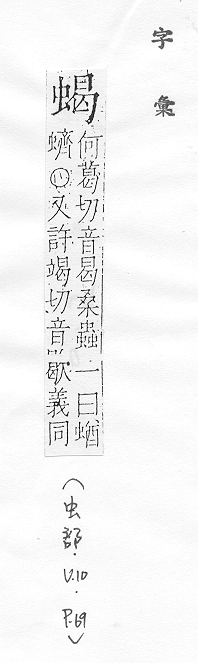 字彙
蝎
何葛切音曷桑蟲一曰蝤
蠐〇又許竭切音歇義同
(虫部.V.10.P.69)